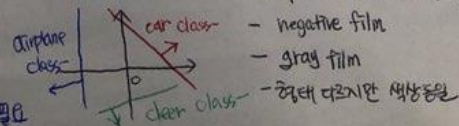 airplane class
car class
deer class
O
- negative film
- gray film
- 형태 다르지만 색상동일